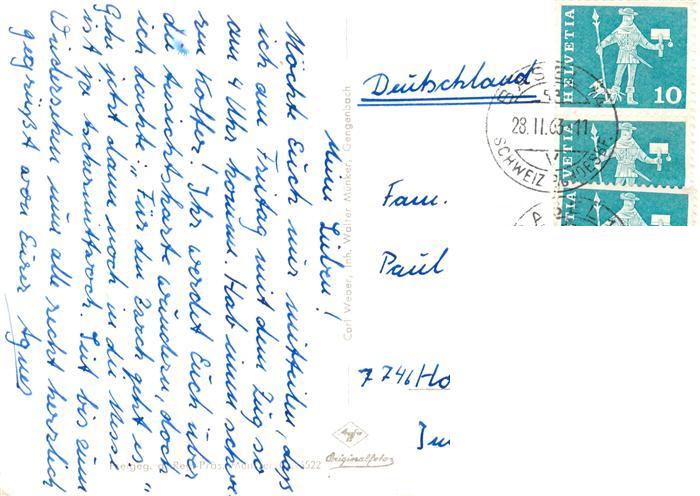 Meine Lieben!
Möchte Euch nur mitteilen, daß
ich am Freitag mit dem Zug so
um 4 Uhr komme. Hab einen schwe
ren Koffer! Ihr werdet Euch über
die Ansichtskarte wundern, doch
ich dachte: "Für den Zweck geht es"
Gehe jetzt dann noch in die Messe
ist ja Aschermittwoch. Seit bis zum
Wiedersehen nun alle recht herzlich
gegrüßt von Eurer Agnes
Carl Weber, Inh. Walter Münker, Gengenbach
Deutschland
Fam.
Paul
7746 Ho
Originalfoto
HELVETIA
10
HELVETIA
HELVETIA
28.II.63-11
SCHWEIZ